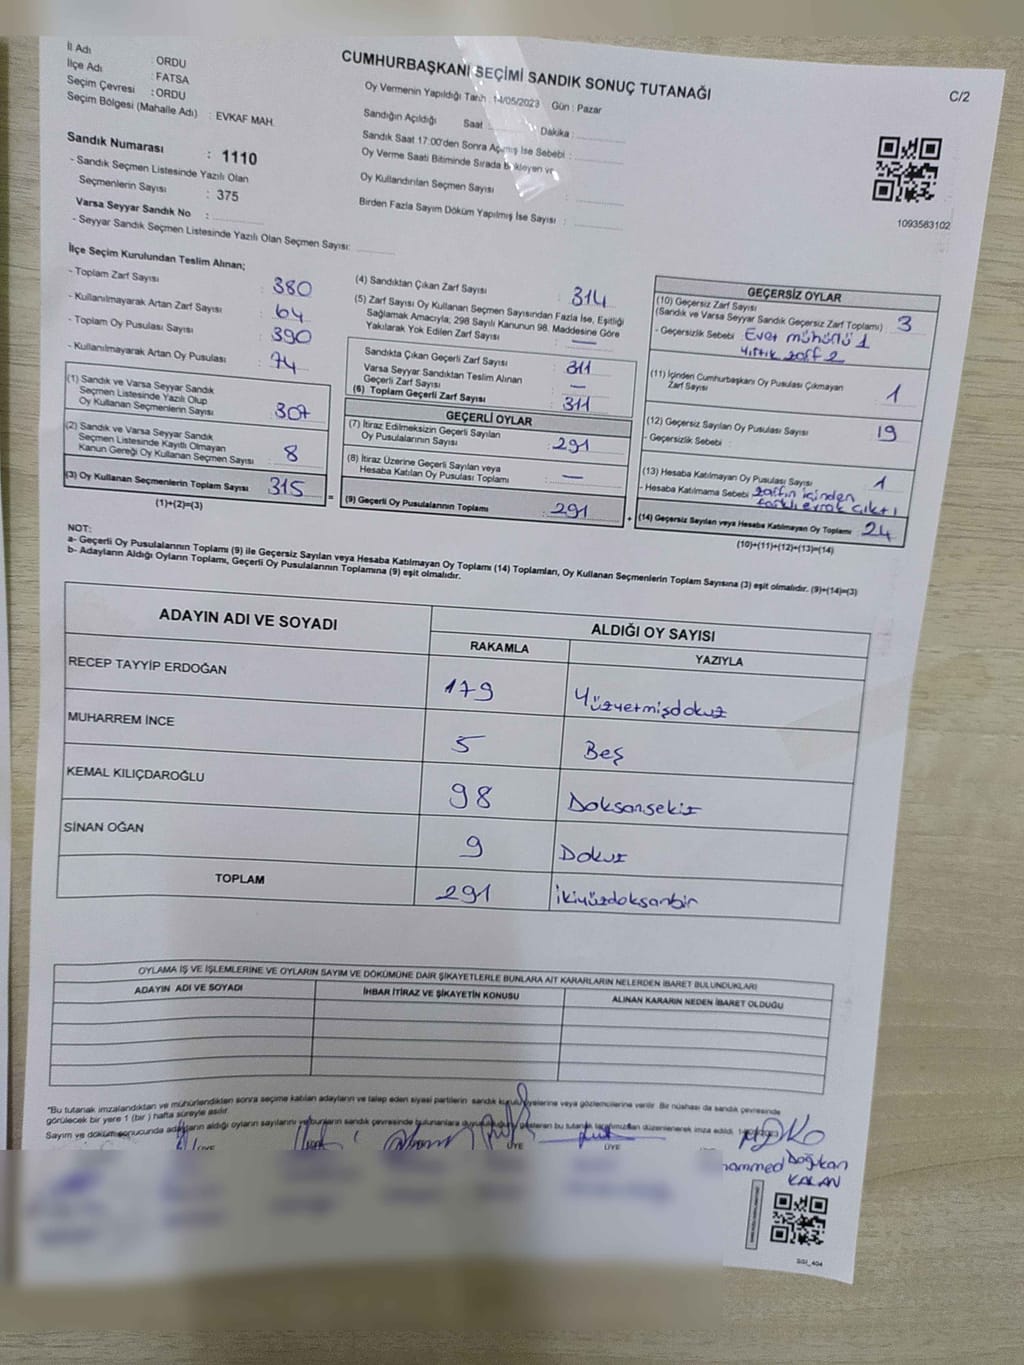 İl Adı : ORDU
İlçe Adı : FATSA
Seçim Çevresi : ORDU
Seçim Bölgesi (Mahalle Adı) : EVKAF MAH.
Sandık Numarası : 1110
- Sandık Seçmen Listesinde Yazılı Olan
Seçmenlerin Sayısı : 375
Varsa Seyyar Sandık No :
- Seyyar Sandık Seçmen Listesinde Yazılı Olan Seçmen Sayısı:
CUMHURBAŞKANI SEÇİMİ SANDIK SONUÇ TUTANAĞI
C/2
Oy Vermenin Yapıldığı Tarih : 14/05/2023 Gün : Pazar
Sandığın Açıldığı Saat : Dakika :
Sandık Saat 17:00'den Sonra Açılmış İse Sebebi :
Oy Verme Saati Bitiminde Sırada Bekleyen ve
Oy Kullandırılan Seçmen Sayısı :
Birden Fazla Sayım Döküm Yapılmış İse Sayısı :
1093583102
İlçe Seçim Kurulundan Teslim Alınan;
- Toplam Zarf Sayısı : 380
- Kullanılmayarak Artan Zarf Sayısı : 64
- Toplam Oy Pusulası Sayısı : 390
- Kullanılmayarak Artan Oy Pusulası : 74
(1) Sandık ve Varsa Seyyar Sandık
Seçmen Listesinde Yazılı Olup
Oy Kullanan Seçmenlerin Sayısı : 307
(2) Sandık ve Varsa Seyyar Sandık
Seçmen Listesinde Kayıtlı Olmayan
Kanun Gereği Oy Kullanan Seçmen Sayısı : 8
(3) Oy Kullanan Seçmenlerin Toplam Sayısı : 315
(1)+(2)=(3)
=
(4) Sandıktan Çıkan Zarf Sayısı : 314
(5) Zarf Sayısı Oy Kullanan Seçmen Sayısından Fazla İse, Eşitliği
Sağlamak Amacıyla; 298 Sayılı Kanunun 98. Maddesine Göre
Yakılarak Yok Edilen Zarf Sayısı : —
Sandıkta Çıkan Geçerli Zarf Sayısı : 311
Varsa Seyyar Sandıktan Teslim Alınan
Geçerli Zarf Sayısı : —
(6) Toplam Geçerli Zarf Sayısı : 311
GEÇERLİ OYLAR
(7) İtiraz Edilmeksizin Geçerli Sayılan
Oy Pusulalarının Sayısı : 291
(8) İtiraz Üzerine Geçerli Sayılan veya
Hesaba Katılan Oy Pusulası Toplamı : —
(9) Geçerli Oy Pusulalarının Toplamı : 291
+
GEÇERSİZ OYLAR
(10) Geçersiz Zarf Sayısı
(Sandık ve Varsa Seyyar Sandık Geçersiz Zarf Toplamı) : 3
- Geçersizlik Sebebi : Evet mühürlü 1
Yırtık zarf 2
(11) İçinden Cumhurbaşkanı Oy Pusulası Çıkmayan
Zarf Sayısı : 1
(12) Geçersiz Sayılan Oy Pusulası Sayısı : 19
- Geçersizlik Sebebi :
(13) Hesaba Katılmayan Oy Pusulası Sayısı : 1
- Hesaba Katılmama Sebebi : zarfın içinden
farklı evrak çıktı
(14) Geçersiz Sayılan veya Hesaba Katılmayan Oy Toplamı : 24
(10)+(11)+(12)+(13)=(14)
NOT:
a- Geçerli Oy Pusulalarının Toplamı (9) ile Geçersiz Sayılan veya Hesaba Katılmayan Oy Toplamı (14) Toplamları, Oy Kullanan Seçmenlerin Toplam Sayısına (3) eşit olmalıdır. (9)+(14)=(3)
b- Adayların Aldığı Oyların Toplamı, Geçerli Oy Pusulalarının Toplamına (9) eşit olmalıdır.
ADAYIN ADI VE SOYADI ALDIĞI OY SAYISI
RAKAMLA YAZIYLA
RECEP TAYYİP ERDOĞAN 179 Yüzyetmişdokuz
MUHARREM İNCE 5 Beş
KEMAL KILIÇDAROĞLU 98 Doksansekiz
SİNAN OĞAN 9 Dokuz
TOPLAM 291 ikiyüzdoksanbir
OYLAMA İŞ VE İŞLEMLERİNE VE OYLARIN SAYIM VE DÖKÜMÜNE DAİR ŞİKAYETLERLE BUNLARA AİT KARARLARIN NELERDEN İBARET BULUNDUKLARI
ADAYIN ADI VE SOYADI İHBAR İTİRAZ VE ŞİKAYETİN KONUSU ALINAN KARARIN NEDEN İBARET OLDUĞU
"Bu tutanak imzalandıktan ve mühürlendikten sonra seçime katılan adayların ve talep eden siyasi partilerin sandık kurulu üyelerine veya gözlemcilerine verilir. Bir nüshası da sandık çevresinde
görülecek bir yere 1 (bir) hafta süreyle asılır.
Sayım ve döküm sonucunda adayların aldığı oyların sayılarını ve bunların sandık çevresinde bulunanlara gösteren bu tutanak tarafımızdan düzenlenerek imza edildi.
ÜYE ÜYE ÜYE
Doğukan
KALAN
SSİ_404